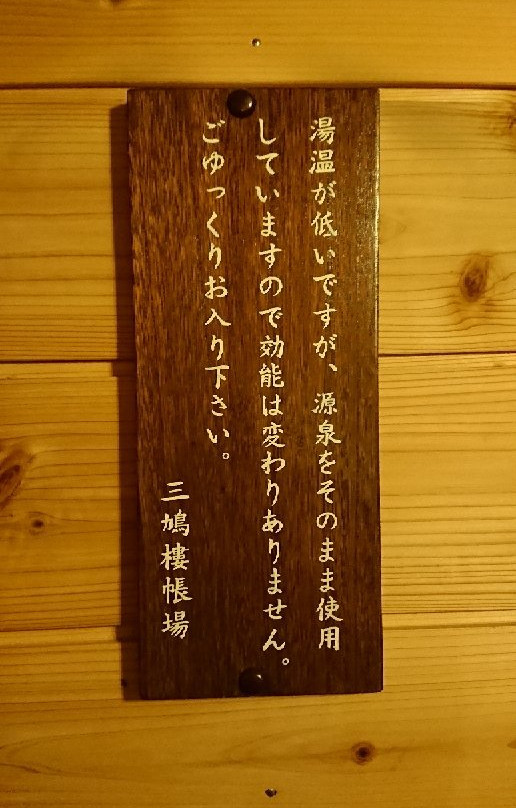 湯温が低いですが、源泉をそのまま使用
していますので効能は変わりありません。
ごゆっくりお入り下さい。
三鳩樓帳場